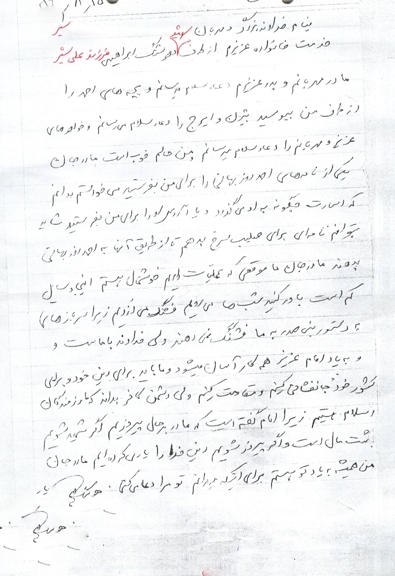 بنام خداوند بزرگ و مهربان
خدمت خانواده عزیزم از طرف هوشنگ ابراهیمی فرزند علی شیر
مادر مهربانم و پدر عزیزم دعا و سلام میرسانم و بچه های احمد را
از طرف من ببوسید بیژن و ایرج را دعا و سلام می رسانم و خواهرهای
عزیز و مهربانم را دعا و سلام میرسانم من حالم خوب است مادر جان
یکی از نامه های احمد روزبهانی را برای من بفرستید می خواستم بدانم
که اسارت چگونه به او می گذرد و یا آدرس او را برای من بفرستید شاید
بتوانم نامه ای برای صلیب سرخ بدهم تا از طریق آنها به احمد روزبهانی
بدهند مادر جان ما موقعی که عملیات داریم خوشحال هستیم
کم است باور کنید شب ها می رویم فشنگ می زیرا سربازهای
به دستور بنی صدر به ما فشنگ نمی دهند ولی خداوند با ماست و
و به یاد امام عزیز هر کار آسان میشود و ما باید برای دین خود و برای
کشور خود جانفشانی کنیم و مقاومت کنیم ولی دشمن کافر بداند که ما رزمندگان
اسلام هستیم زیرا امام گفته است که ما در هر حال پیروزیم اگر شهید شویم
بهشت مال است و اگر پیروز شویم دین خدا را یاری کرده ایم مادر جان
من همیشه به یاد تو هستم برای اینکه میدانم تو مرا دعا می کنی